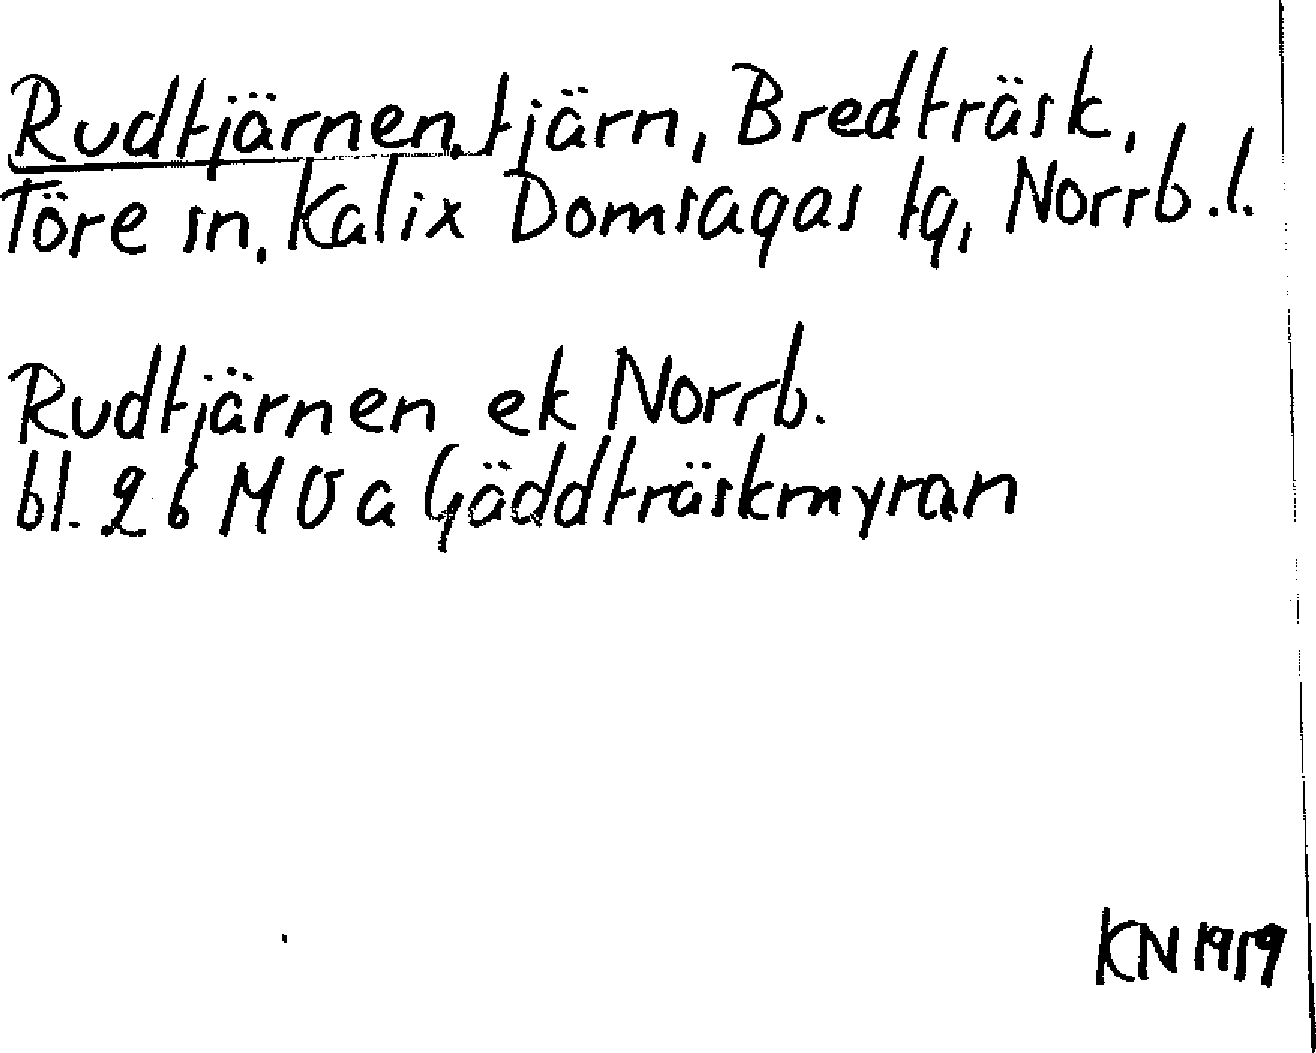 Rudtjärnen, tjärn, Bredträsk,
Töre sn, Kalix Domsagas tg, Norrb.l.
Rudtjärnen ek Norrb.
bl. 26 MO a Gäddträskmyran
KN 1959